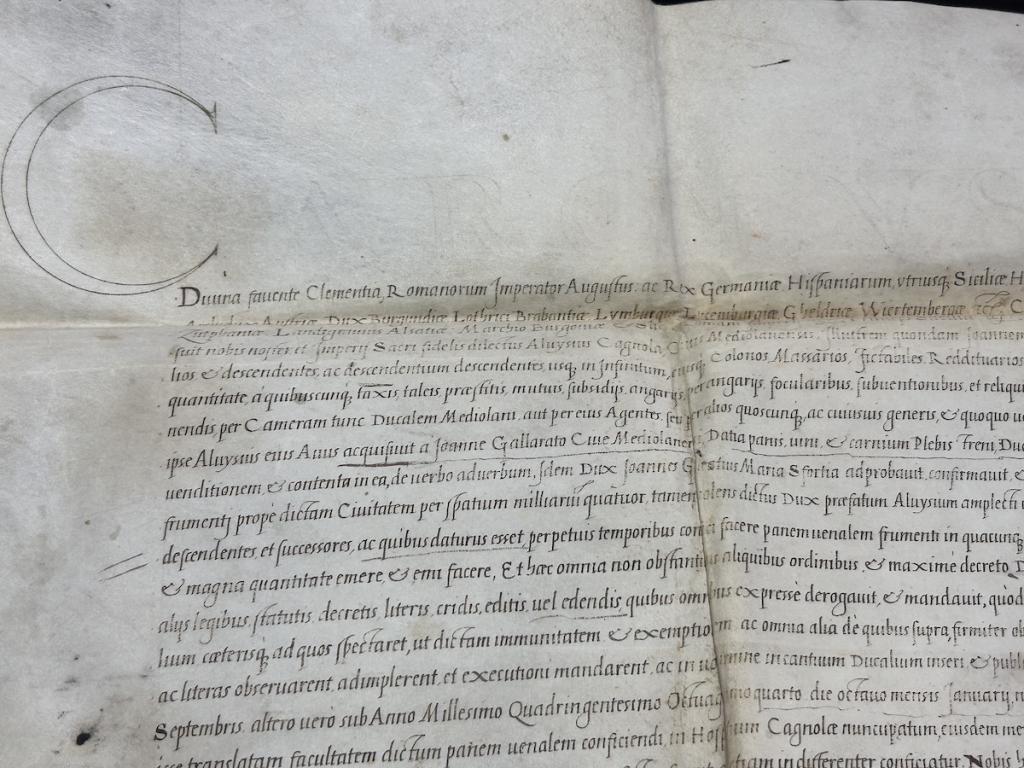 C R O V S
Diuina fauente Clementia, Romanorum Imperator Augustus: ac Rex Germaniæ Hispaniarum, vtriusq; Siciliæ H
Austriæ Dux Burgundiæ Lothrici Brabantiæ Lymburgiæ Lucemburgiæ Gheldriæ, Wiertembergæ
Lantgrauius Alsatiæ Marchio Burgoniæ &
fuit nobis noster et Imperij Sacri fidelis dilectus Aluysius Cagnola, Ciuis Mediolanensis, Illustrem quondam Joannem
lios, & descendentes, ac descendentium descendentes, usq; in infinitum, eiusq; Colonos Massarios, fictabiles Reddituarios
quantitate, a quibuscunq; taxis, taleis, præstitis, mutuis, subsidijs, angarijs, perangarijs, focularibus, subuentionibus, et reliqu
nendis, per Cameram tunc Ducalem Mediolani, aut per eius Agentes, seu per alios quoscunq;, ac cuiusuis generis, & quoquo
ipse Aluysius eius Auus acquisiuit a Joanne Gallarato Ciue Mediolanensi, Datia panis, uini, & carnium Plebis Treni, Duc
venditionem, & contenta in ea, de verbo aduerbum, Idem Dux Joannes Galeatius Maria Sfortia adprobauit, confirmauit, &
frumentj prope dictam Ciuitatem per spatium milliariū quatuor, tamen uolens dictus Dux præfatum Aluysium amplecti
descendentes, et successores, ac quibus daturus esset, perpetuis temporibus facere panem uenalem frumenti in quacunq;
& magna quantitate emere, & emi facere, Et hæc omnia non obstantibus aliquibus ordinibus, & maxime decreto
alijs legibus, statutis, decretis, literis, cridis, editis, uel edendis, quibus omnibus expresse derogauit, & mandauit, quòd
lium cæterisq; ad quos spectaret, ut dictam immunitatem & exemptionem ac omnia alia de quibus supra, firmiter
ac literas obseruarent, adimplerent, et executioni mandarent, ac in uolumine incantuum Ducalium inseri, & publ
Septembris, altero uero sub Anno Millesimo Quadringentesimo Octuagesimoquarto die octauo mensis Januarij,
translatam facultatem dictum panem uenalem conficiendi, in Hospitium Cagnolæ nuncupatum, eiusdem
indifferenter conficiatur, Nobis